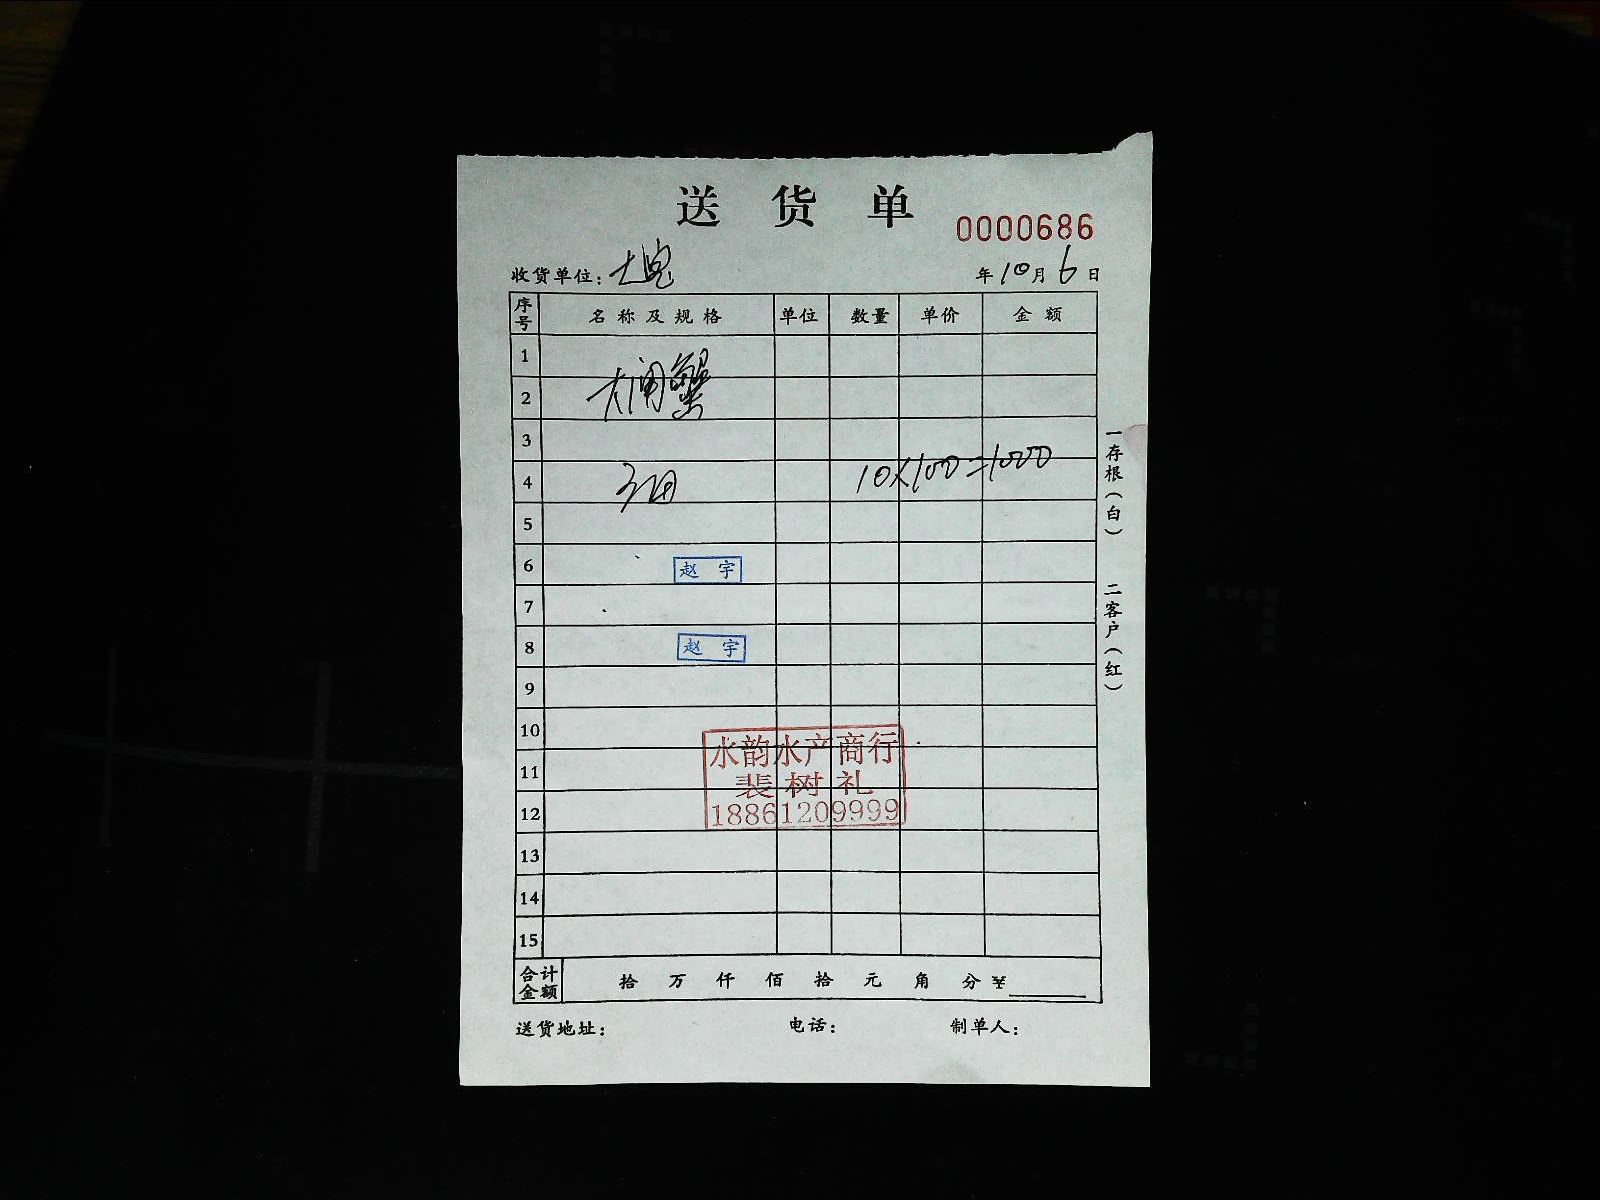 送货单
0000686
收货单位：
年10月6日
序号 名称及规格 单位 数量 单价 金额
1
大闸蟹
2
3
4 10×100=1000
5
6 赵宇
7
8 赵宇
9
10
水韵水产商行
11
裴树礼
12 18861209999
13
14
15
合计金额 拾 万 仟 佰 拾 元 角 分 ¥
送货地址： 电话： 制单人：
一存根（白）
二客户（红）